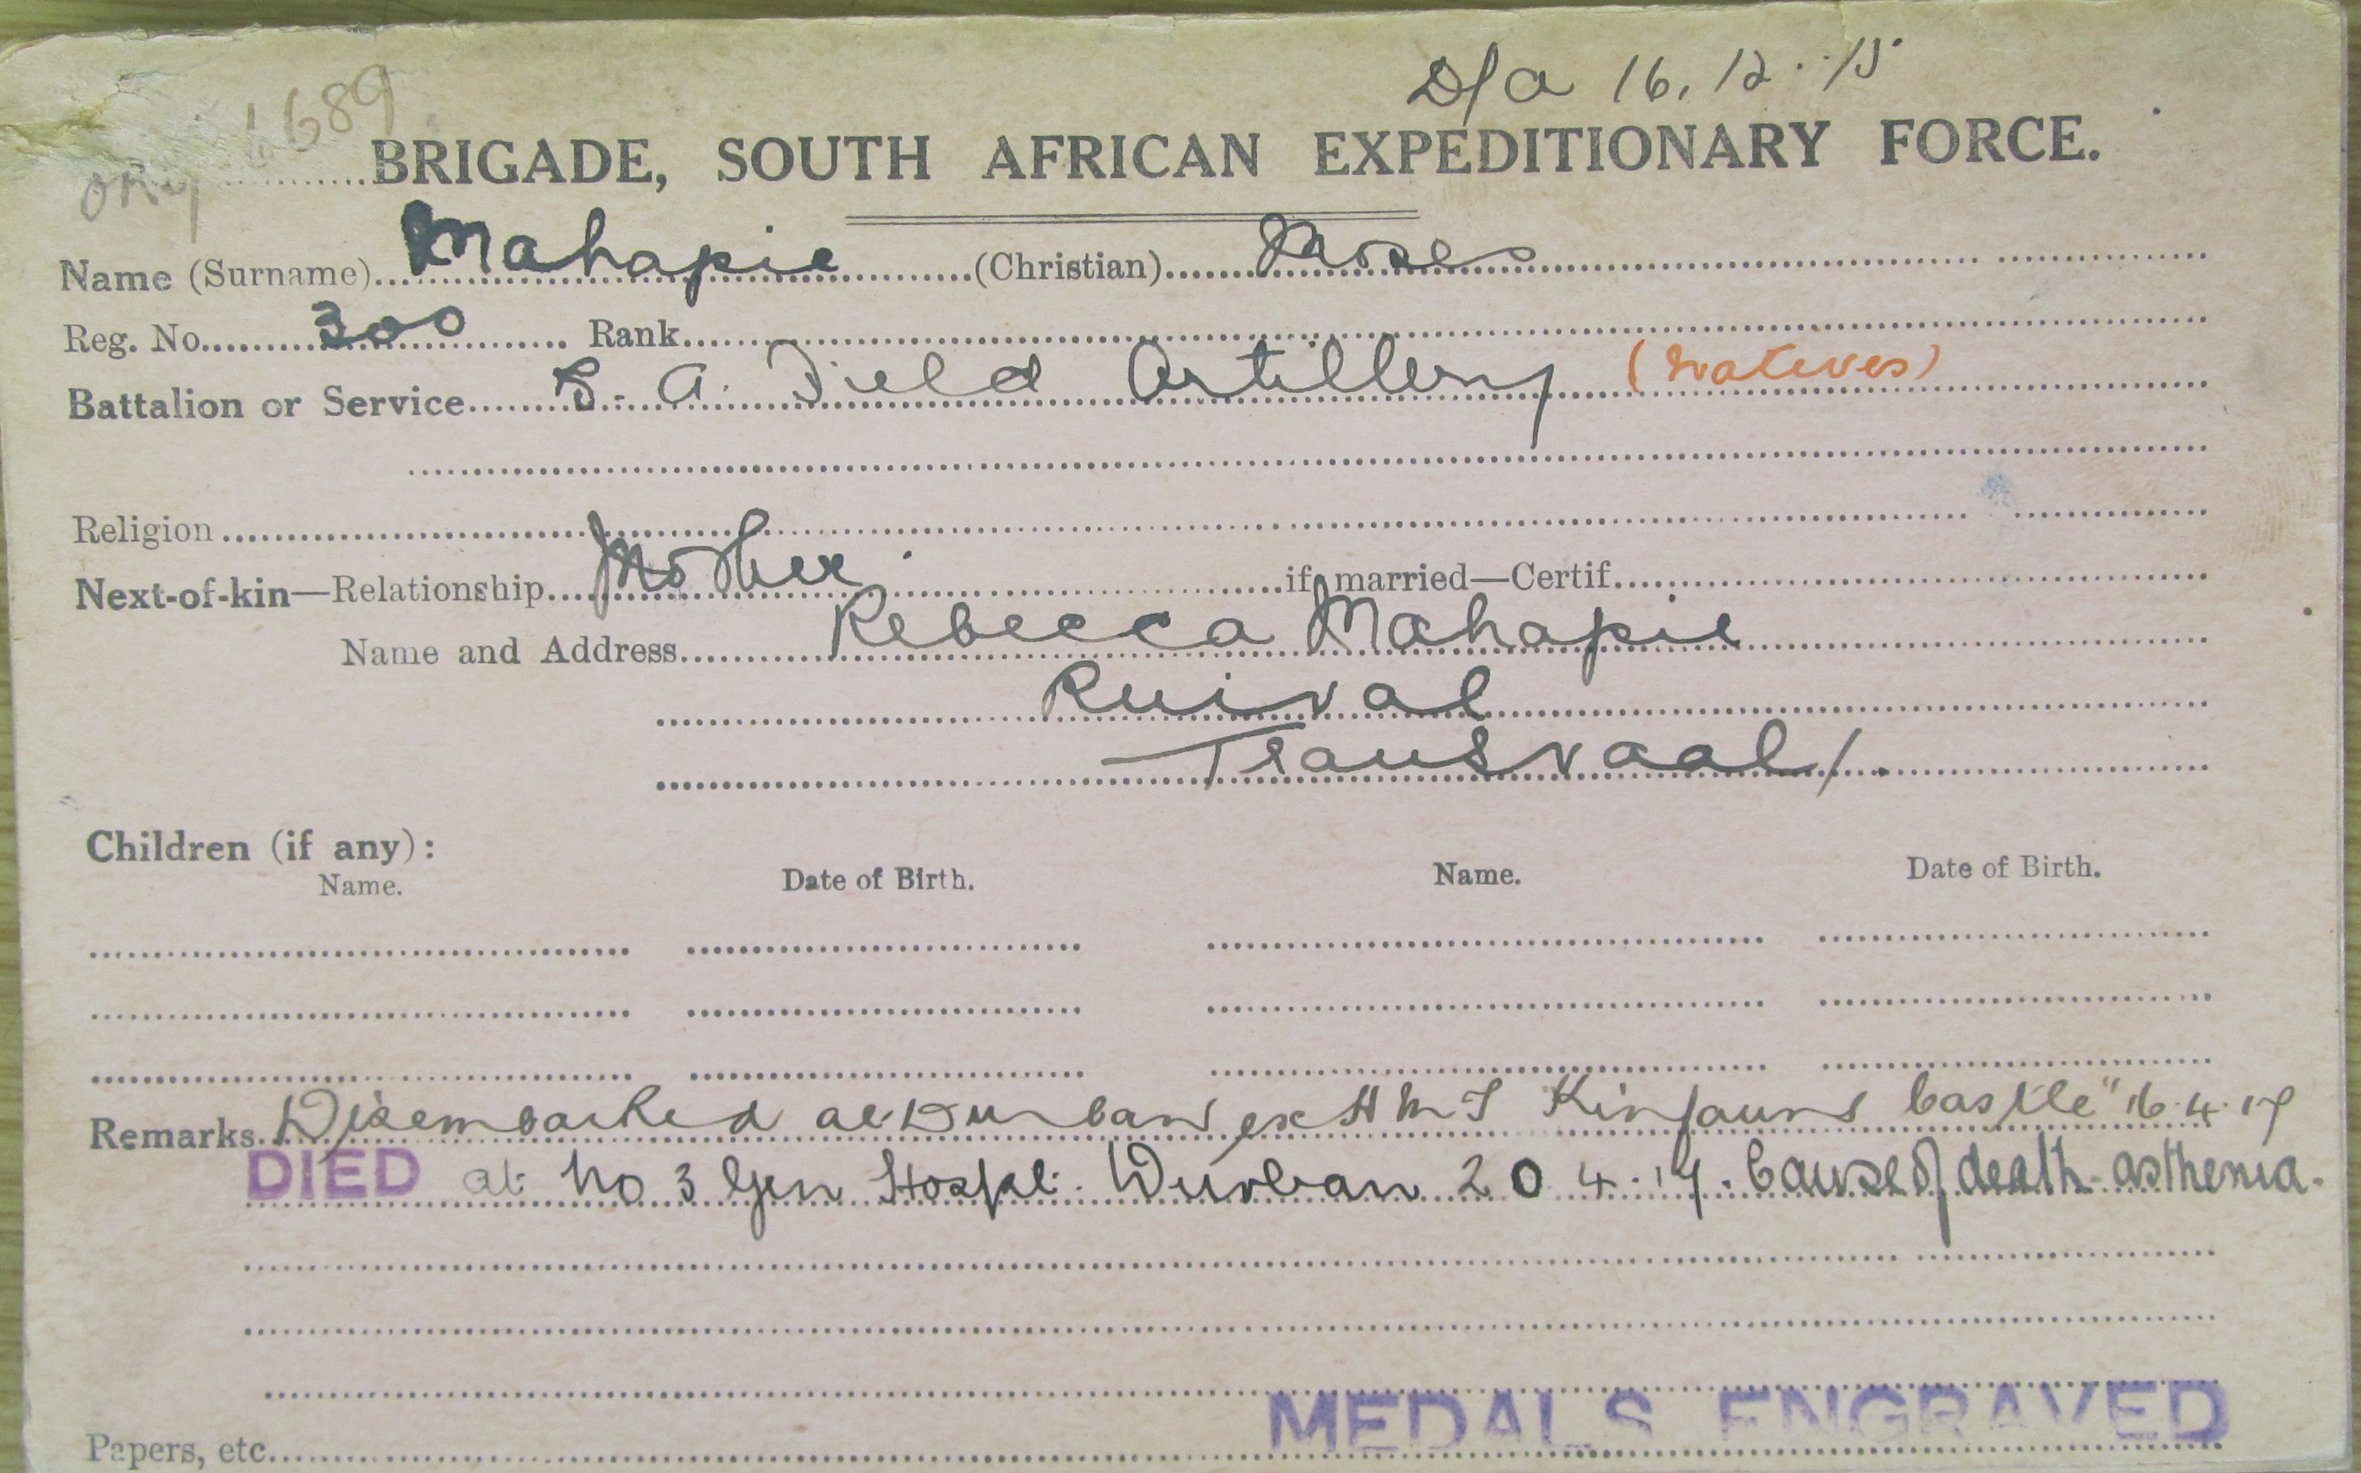 D/a 16.12.15
6689
BRIGADE, SOUTH AFRICAN EXPEDITIONARY FORCE.
Name (Surname) Mahapie (Christian) Moses
Reg. No. 300 Rank
Battalion or Service S. A. Field Artillery (Natives)
Religion
Next-of-kin—Relationship Mother if married—Certif.
Name and Address Rebecca Mahapie
Ruival
Transvaal/.
Children (if any):
Name. Date of Birth. Name. Date of Birth.
Remarks Disembarked at Durban ex H M T Kinfauns Castle" 16.4.17
DIED at No 3 Gen Hospl. Durban 20 4.17. Cause of death - asthenia.
MEDALS ENGRAVED
Papers, etc.